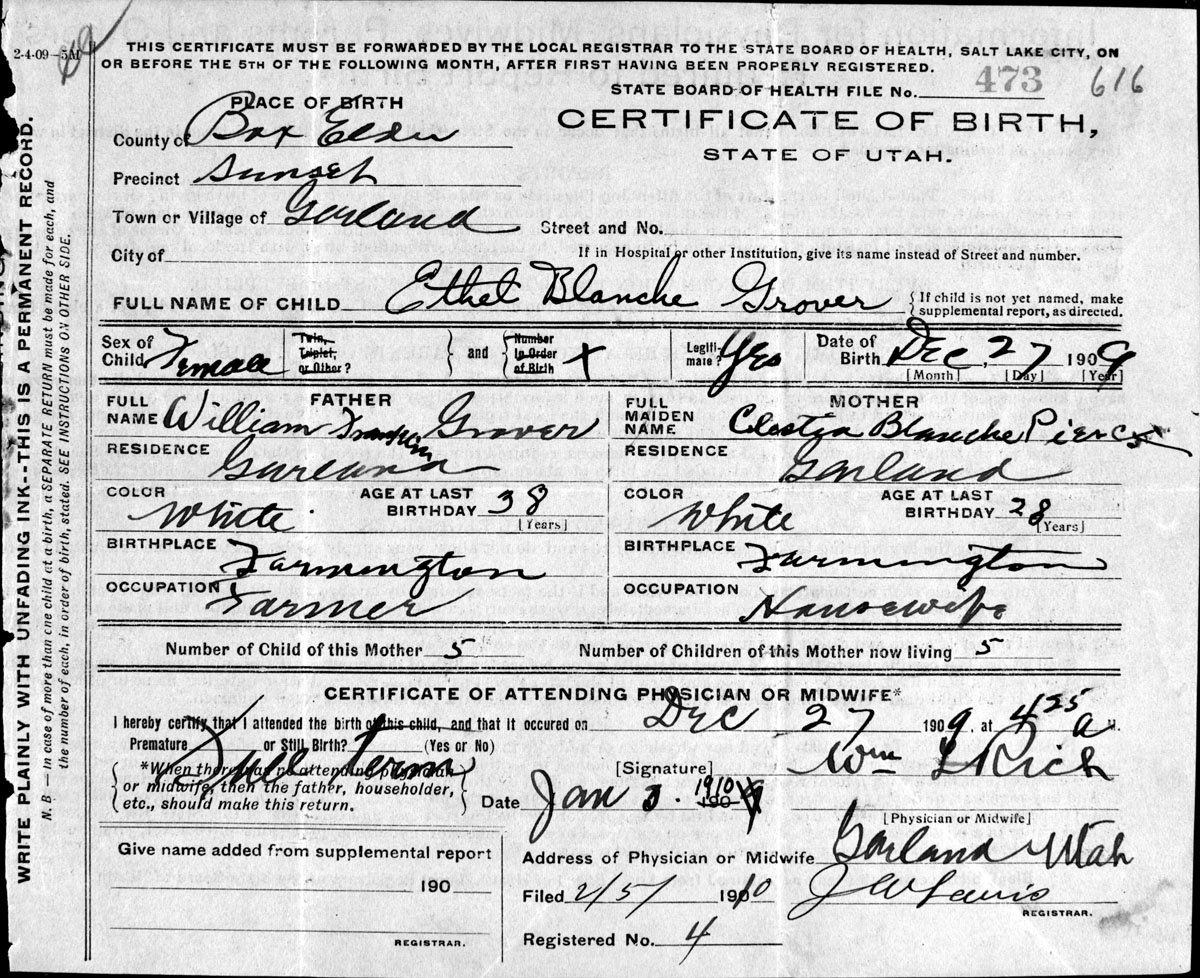 2-4-09—5M
THIS CERTIFICATE MUST BE FORWARDED BY THE LOCAL REGISTRAR TO THE STATE BOARD OF HEALTH, SALT LAKE CITY, ON
OR BEFORE THE 5TH OF THE FOLLOWING MONTH, AFTER FIRST HAVING BEEN PROPERLY REGISTERED.
STATE BOARD OF HEALTH FILE No. 473 616
WRITE PLAINLY WITH UNFADING INK--THIS IS A PERMANENT RECORD.
N. B.—In case of more than one child at a birth, a SEPARATE RETURN must be made for each, and
the number of each, in order of birth, stated. SEE INSTRUCTIONS ON OTHER SIDE.
PLACE OF BIRTH
CERTIFICATE OF BIRTH,
STATE OF UTAH.
County of Box Elder
Precinct Sunset
Town or Village of Garland Street and No.
City of If in Hospital or other Institution, give its name instead of Street and number.
FULL NAME OF CHILD Ethel Blanche Grover {If child is not yet named, make
supplemental report, as directed.
Sex of Child Female Twin, Triplet, or Other? } and { Number In Order of Birth X Legiti-mate? Yes Date of Birth Dec, 27 1909
[Month] [Day] [Year]
FATHER
FULL NAME William Franklin Grover
RESIDENCE Garland
COLOR White AGE AT LAST BIRTHDAY 38 [Years]
BIRTHPLACE Farmington
OCCUPATION Farmer
MOTHER
FULL MAIDEN NAME Celestia Blanche Pierce
RESIDENCE Garland
COLOR White AGE AT LAST BIRTHDAY 28 [Years]
BIRTHPLACE Farmington
OCCUPATION Housewife
Number of Child of this Mother 5 Number of Children of this Mother now living 5
CERTIFICATE OF ATTENDING PHYSICIAN OR MIDWIFE*
I hereby certify that I attended the birth of this child, and that it occured on Dec 27 1909, at 4 25 a M.
Premature or Still Birth? (Yes or No)
Full term
{*When there was no attending physician
or midwife, then the father, householder,
etc., should make this return.}
[Signature] Wm L Rich
Date Jan 3. 1910 190
[Physician or Midwife]
Address of Physician or Midwife Garland Utah
Give name added from supplemental report
190
REGISTRAR.
Filed 2/5/ 1910 J W Lewis
REGISTRAR.
Registered No. 4